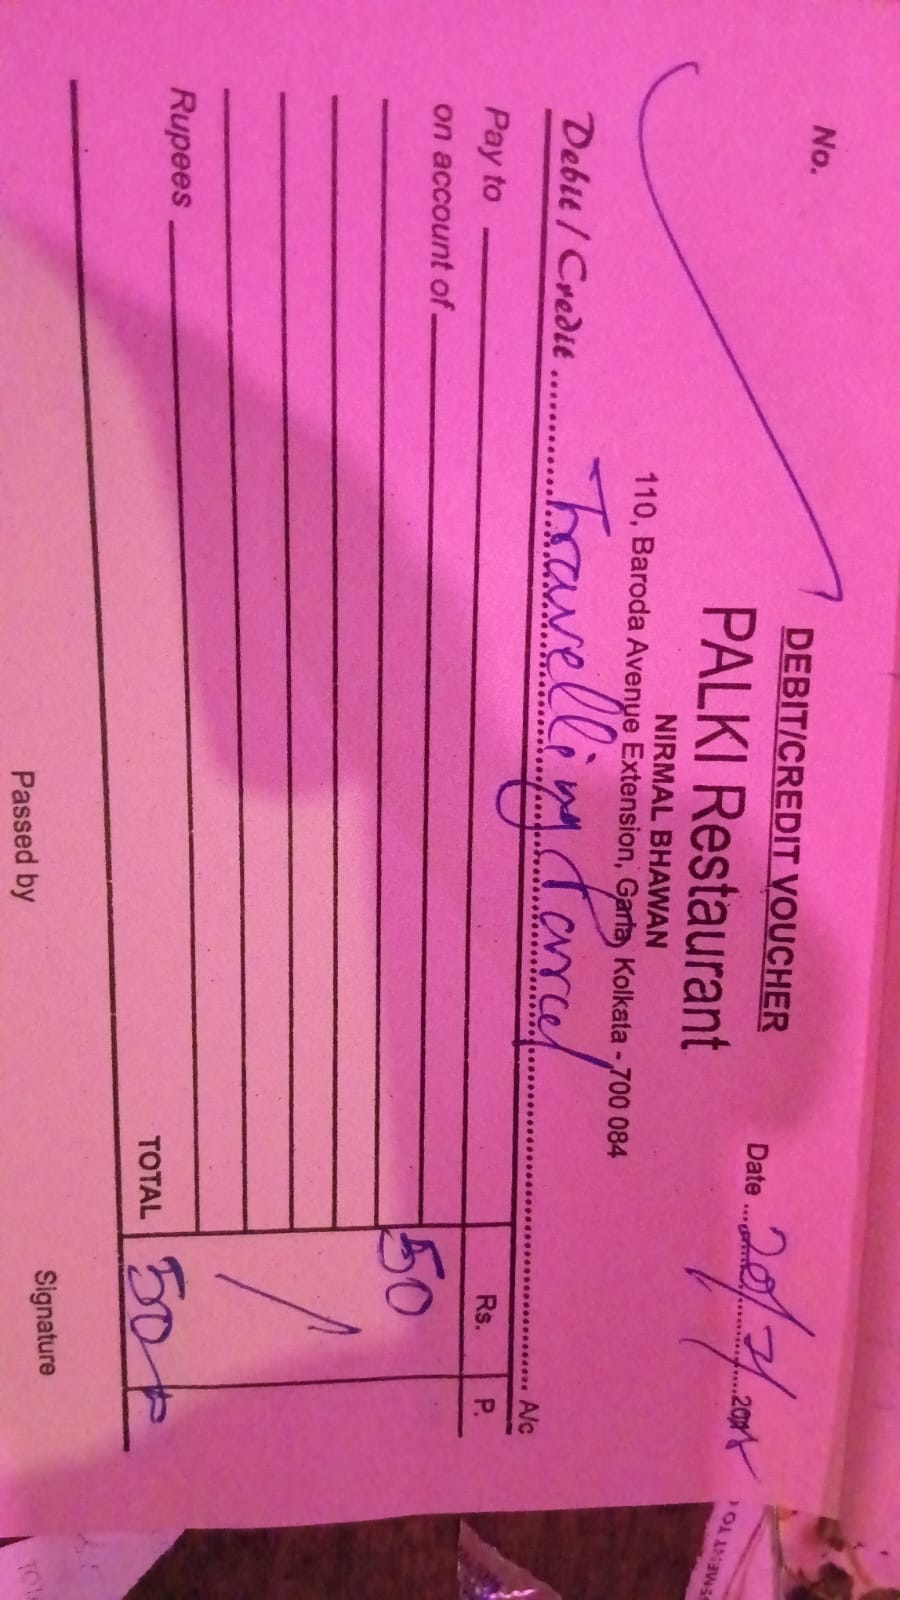 No.
DEBIT/CREDIT VOUCHER
PALKI Restaurant
Date
NIRMAL BHAWAN
110, Baroda Avenue Extension, Garia, Kolkata - 700 084
Debit / Credit Travelling Parcel A/c
Pay to Rs. P.
on account of 50
Rupees
TOTAL 50
Passed by
Signature